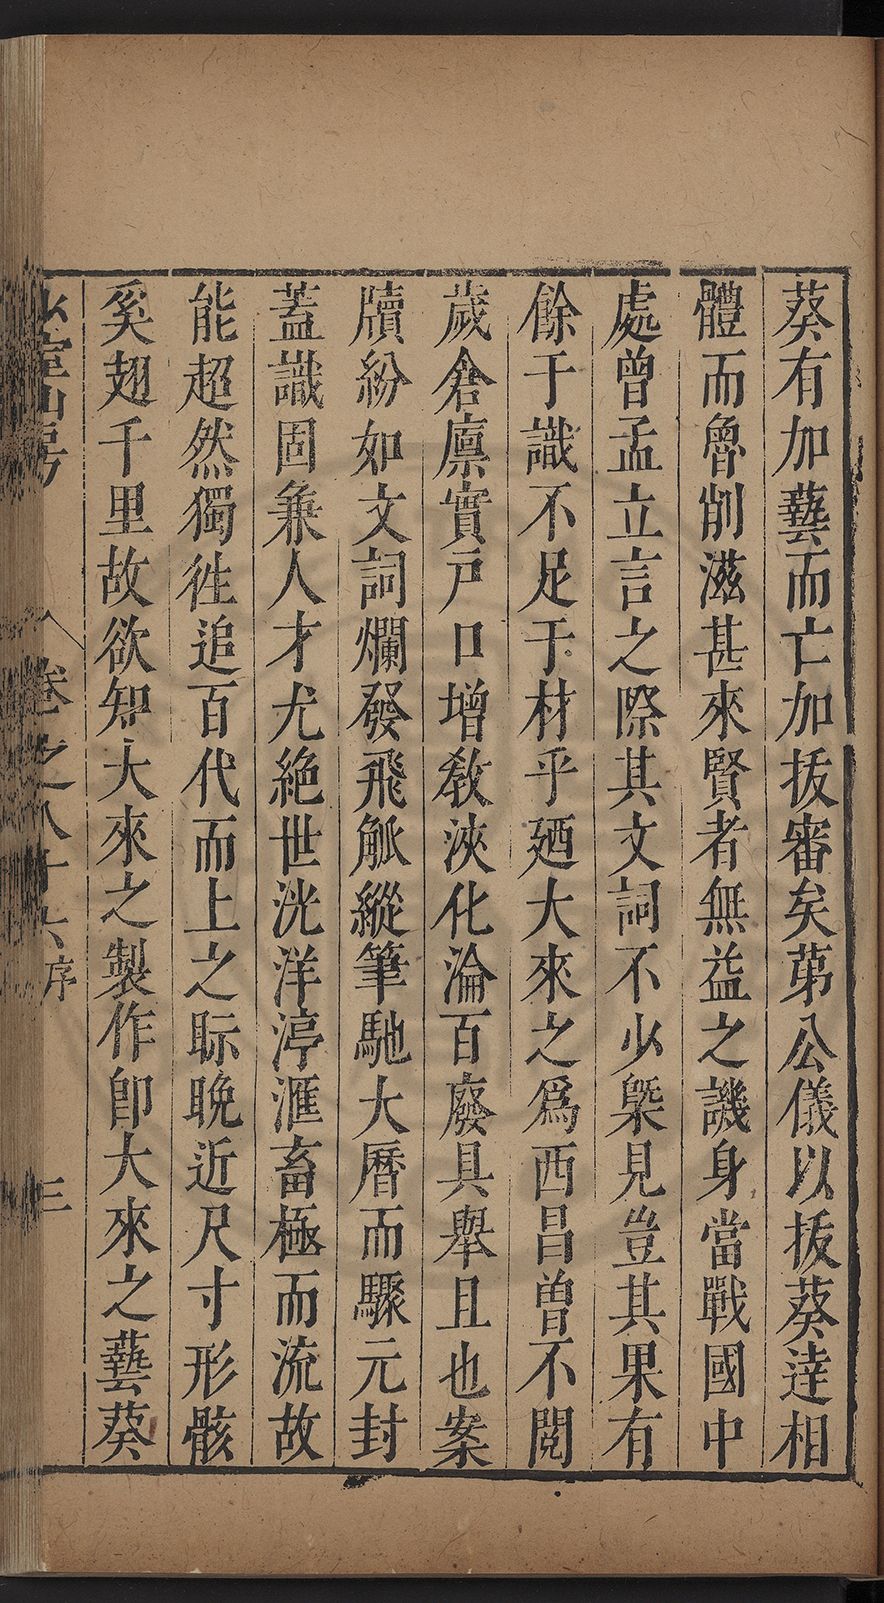 葵有加藝而亡加拔審矣苐公儀以拔葵達相
體而魯削滋甚來賢者無益之譏身當戰國中
處曾孟立言之際其文詞不少槩見豈其果有
餘于識不足于材乎廼大來之爲西昌曾不閱
歲倉廪實戸口增敎浹化淪百廢具舉且也案
牘紛如文詞爛發飛觚縱筆馳大曆而驟元封
蓋識固兼人才尤絶世洸洋渟滙畜極而流故
能超然獨徃追百代而上之眎晚近尺寸形骸
奚翅千里故欲知大來之製作卽大來之藝葵
少室山房 卷之八十六 序 三